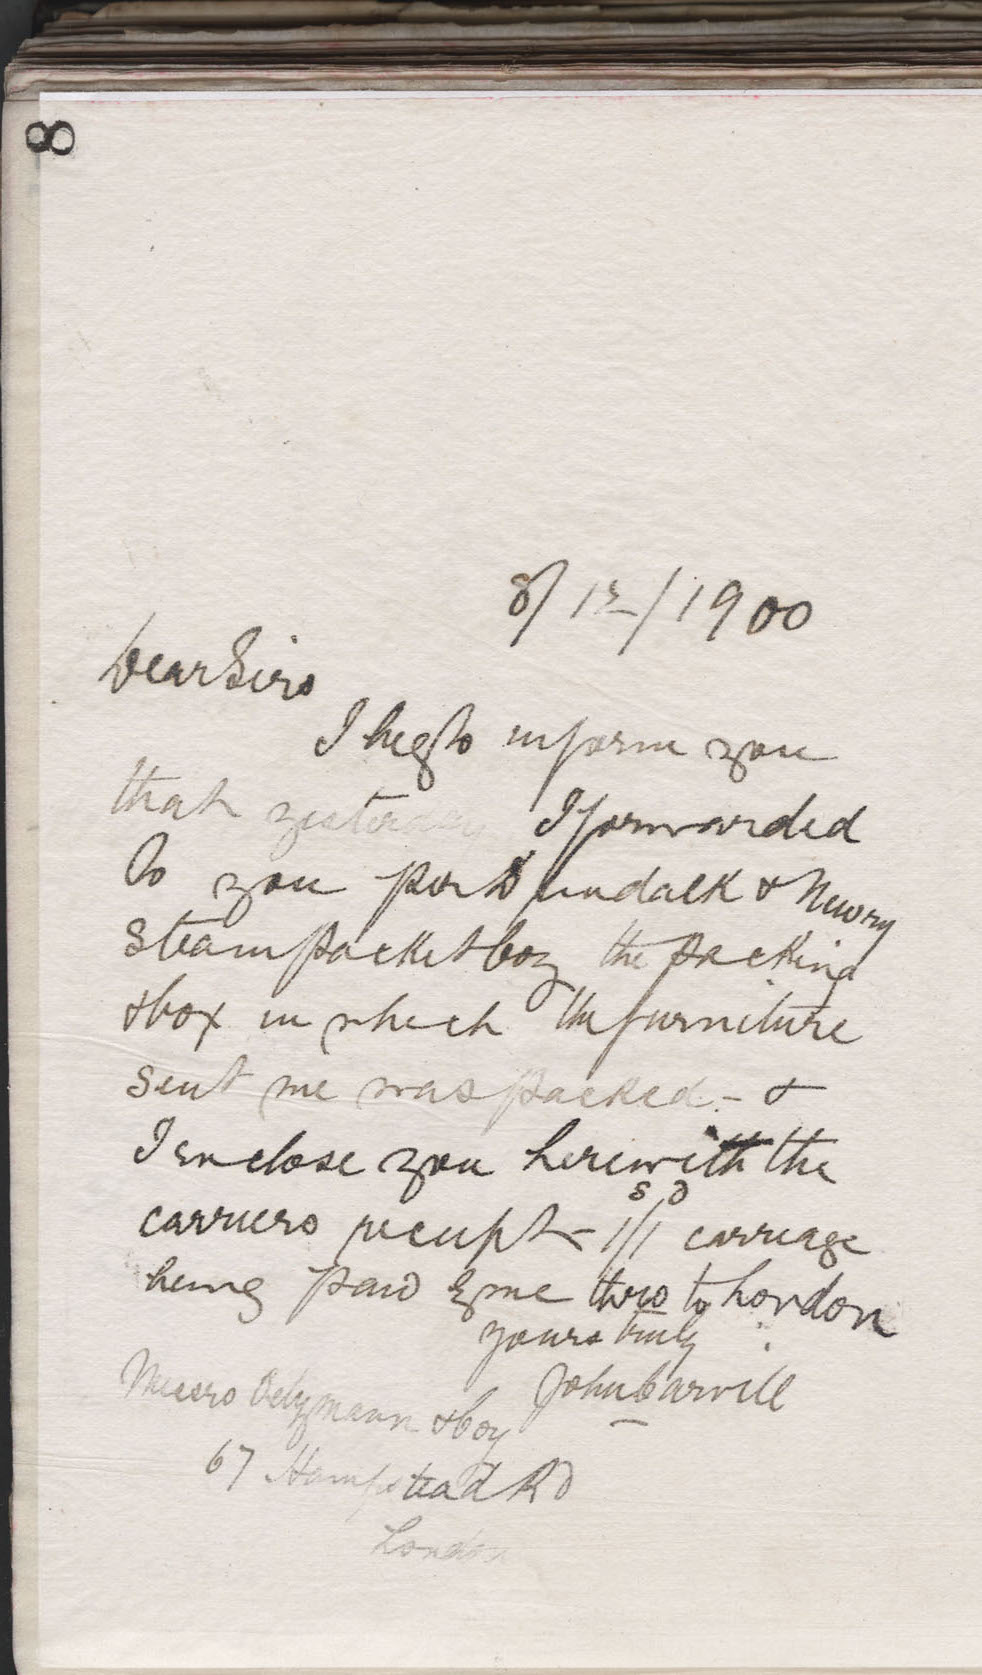 8
8/12/1900
Dear Sirs
I beg to inform you
that yesterday I forwarded
to you per Dundalk & Newry
Steam Packet Coy the packing
box in which the furniture
sent me was packed - &
I enclose you herewith the
carriers receipt - 1/1 s d carriage
being paid by me thro to London
Yours truly
John Carvill
Messrs Oetzmann & Coy
67 Hampstead Rd
London